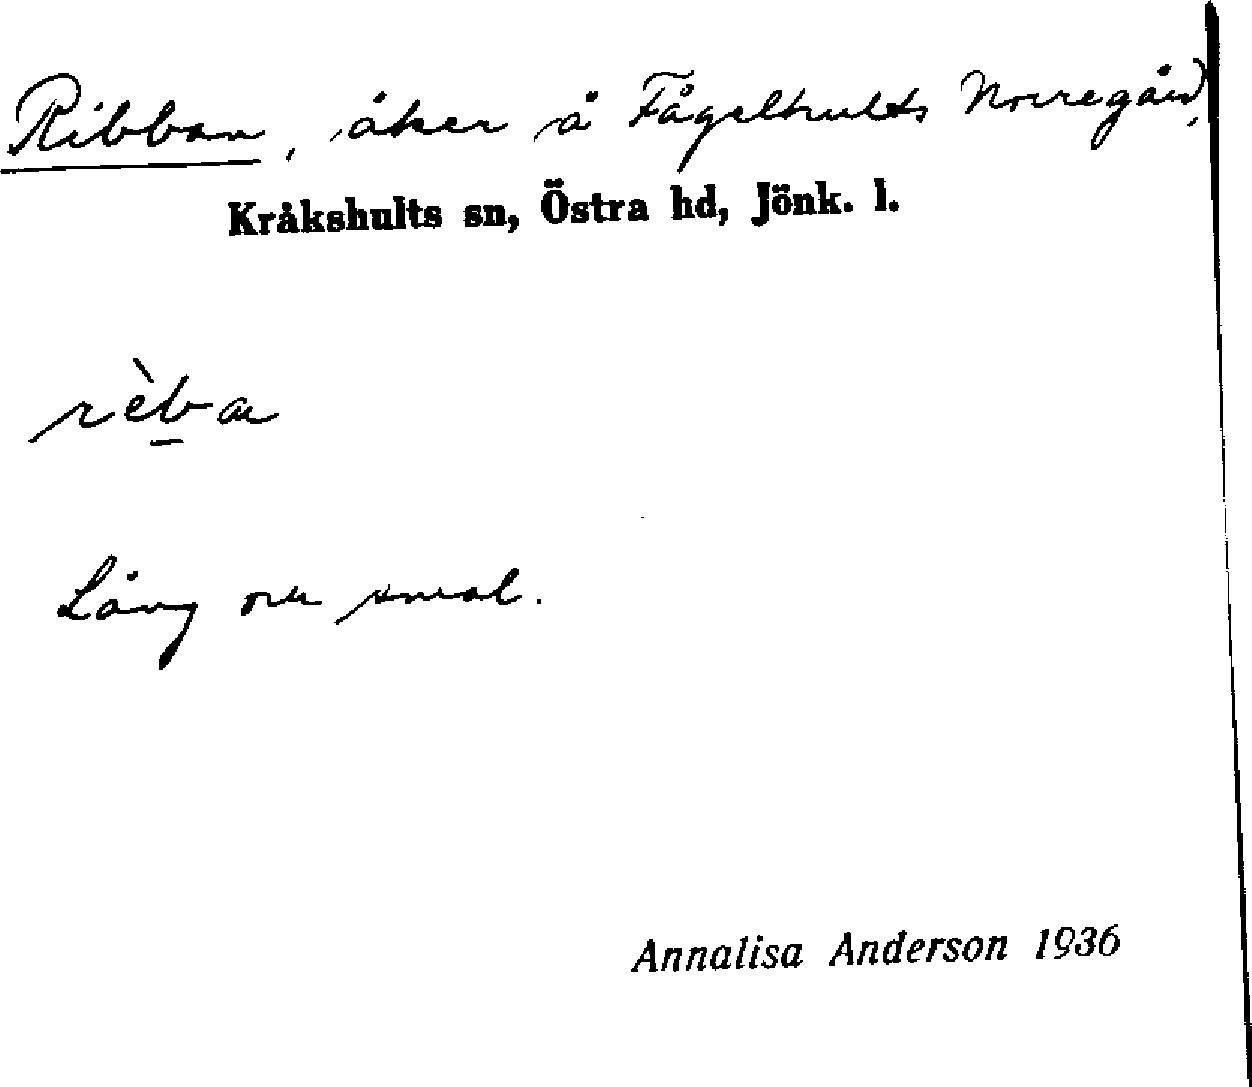 Ribban, åker å Fågelhults Norregård,
Kråkshults sn, Östra hd, Jönk. l.
rèb̲a
Lång och smal.
Annalisa Anderson 1936